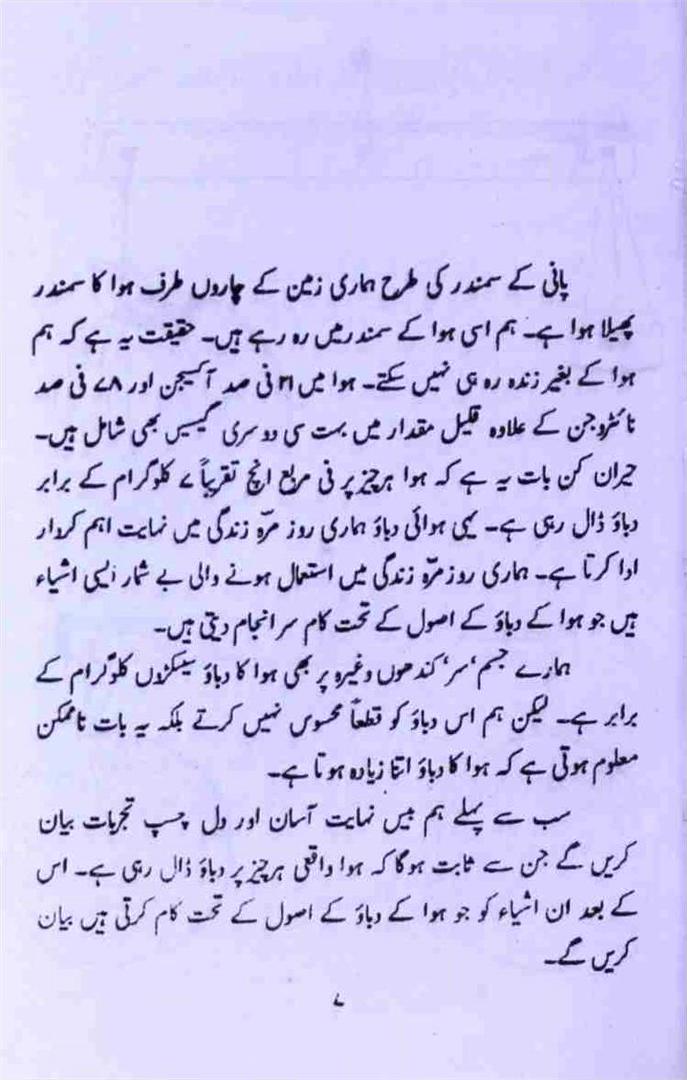 پانی کے سمندر کی طرح ہماری زمین کے چاروں طرف ہوا کا سمندر
پھیلا ہوا ہے۔ ہم اسی ہوا کے سمندر میں رہ رہے ہیں۔ حقیقت یہ ہے کہ ہم
ہوا کے بغیر زندہ رہ ہی نہیں سکتے۔ ہوا میں ۲۱ فی صد آکسیجن اور ۷۸ فی صد
نائٹروجن کے علاوہ قلیل مقدار میں بہت سی دوسری گیسیں بھی شامل ہیں۔
حیران کن بات یہ ہے کہ ہوا ہر چیز پر فی مربع انچ تقریباً ۷ کلوگرام کے برابر
دباؤ ڈال رہی ہے۔ یہی ہوائی دباؤ ہماری روز مرّہ زندگی میں نہایت اہم کردار
ادا کرتا ہے۔ ہماری روز مرّہ زندگی میں استعمال ہونے والی بے شمار ایسی اشیاء
ہیں جو ہوا کے دباؤ کے اصول کے تحت کام سرانجام دیتی ہیں۔
ہمارے جسم، سر، کندھوں وغیرہ پر بھی ہوا کا دباؤ سینکڑوں کلوگرام کے
برابر ہے۔ لیکن ہم اس دباؤ کو قطعاً محسوس نہیں کرتے بلکہ یہ بات ناممکن
معلوم ہوتی ہے کہ ہوا کا دباؤ اتنا زیادہ ہوتا ہے۔
سب سے پہلے ہم بیس نہایت آسان اور دل چسپ تجربات بیان
کریں گے جن سے ثابت ہوگا کہ ہوا واقعی ہر چیز پر دباؤ ڈال رہی ہے۔ اس
کے بعد ان اشیاء کو جو ہوا کے دباؤ کے اصول کے تحت کام کرتی ہیں بیان
کریں گے۔
۷